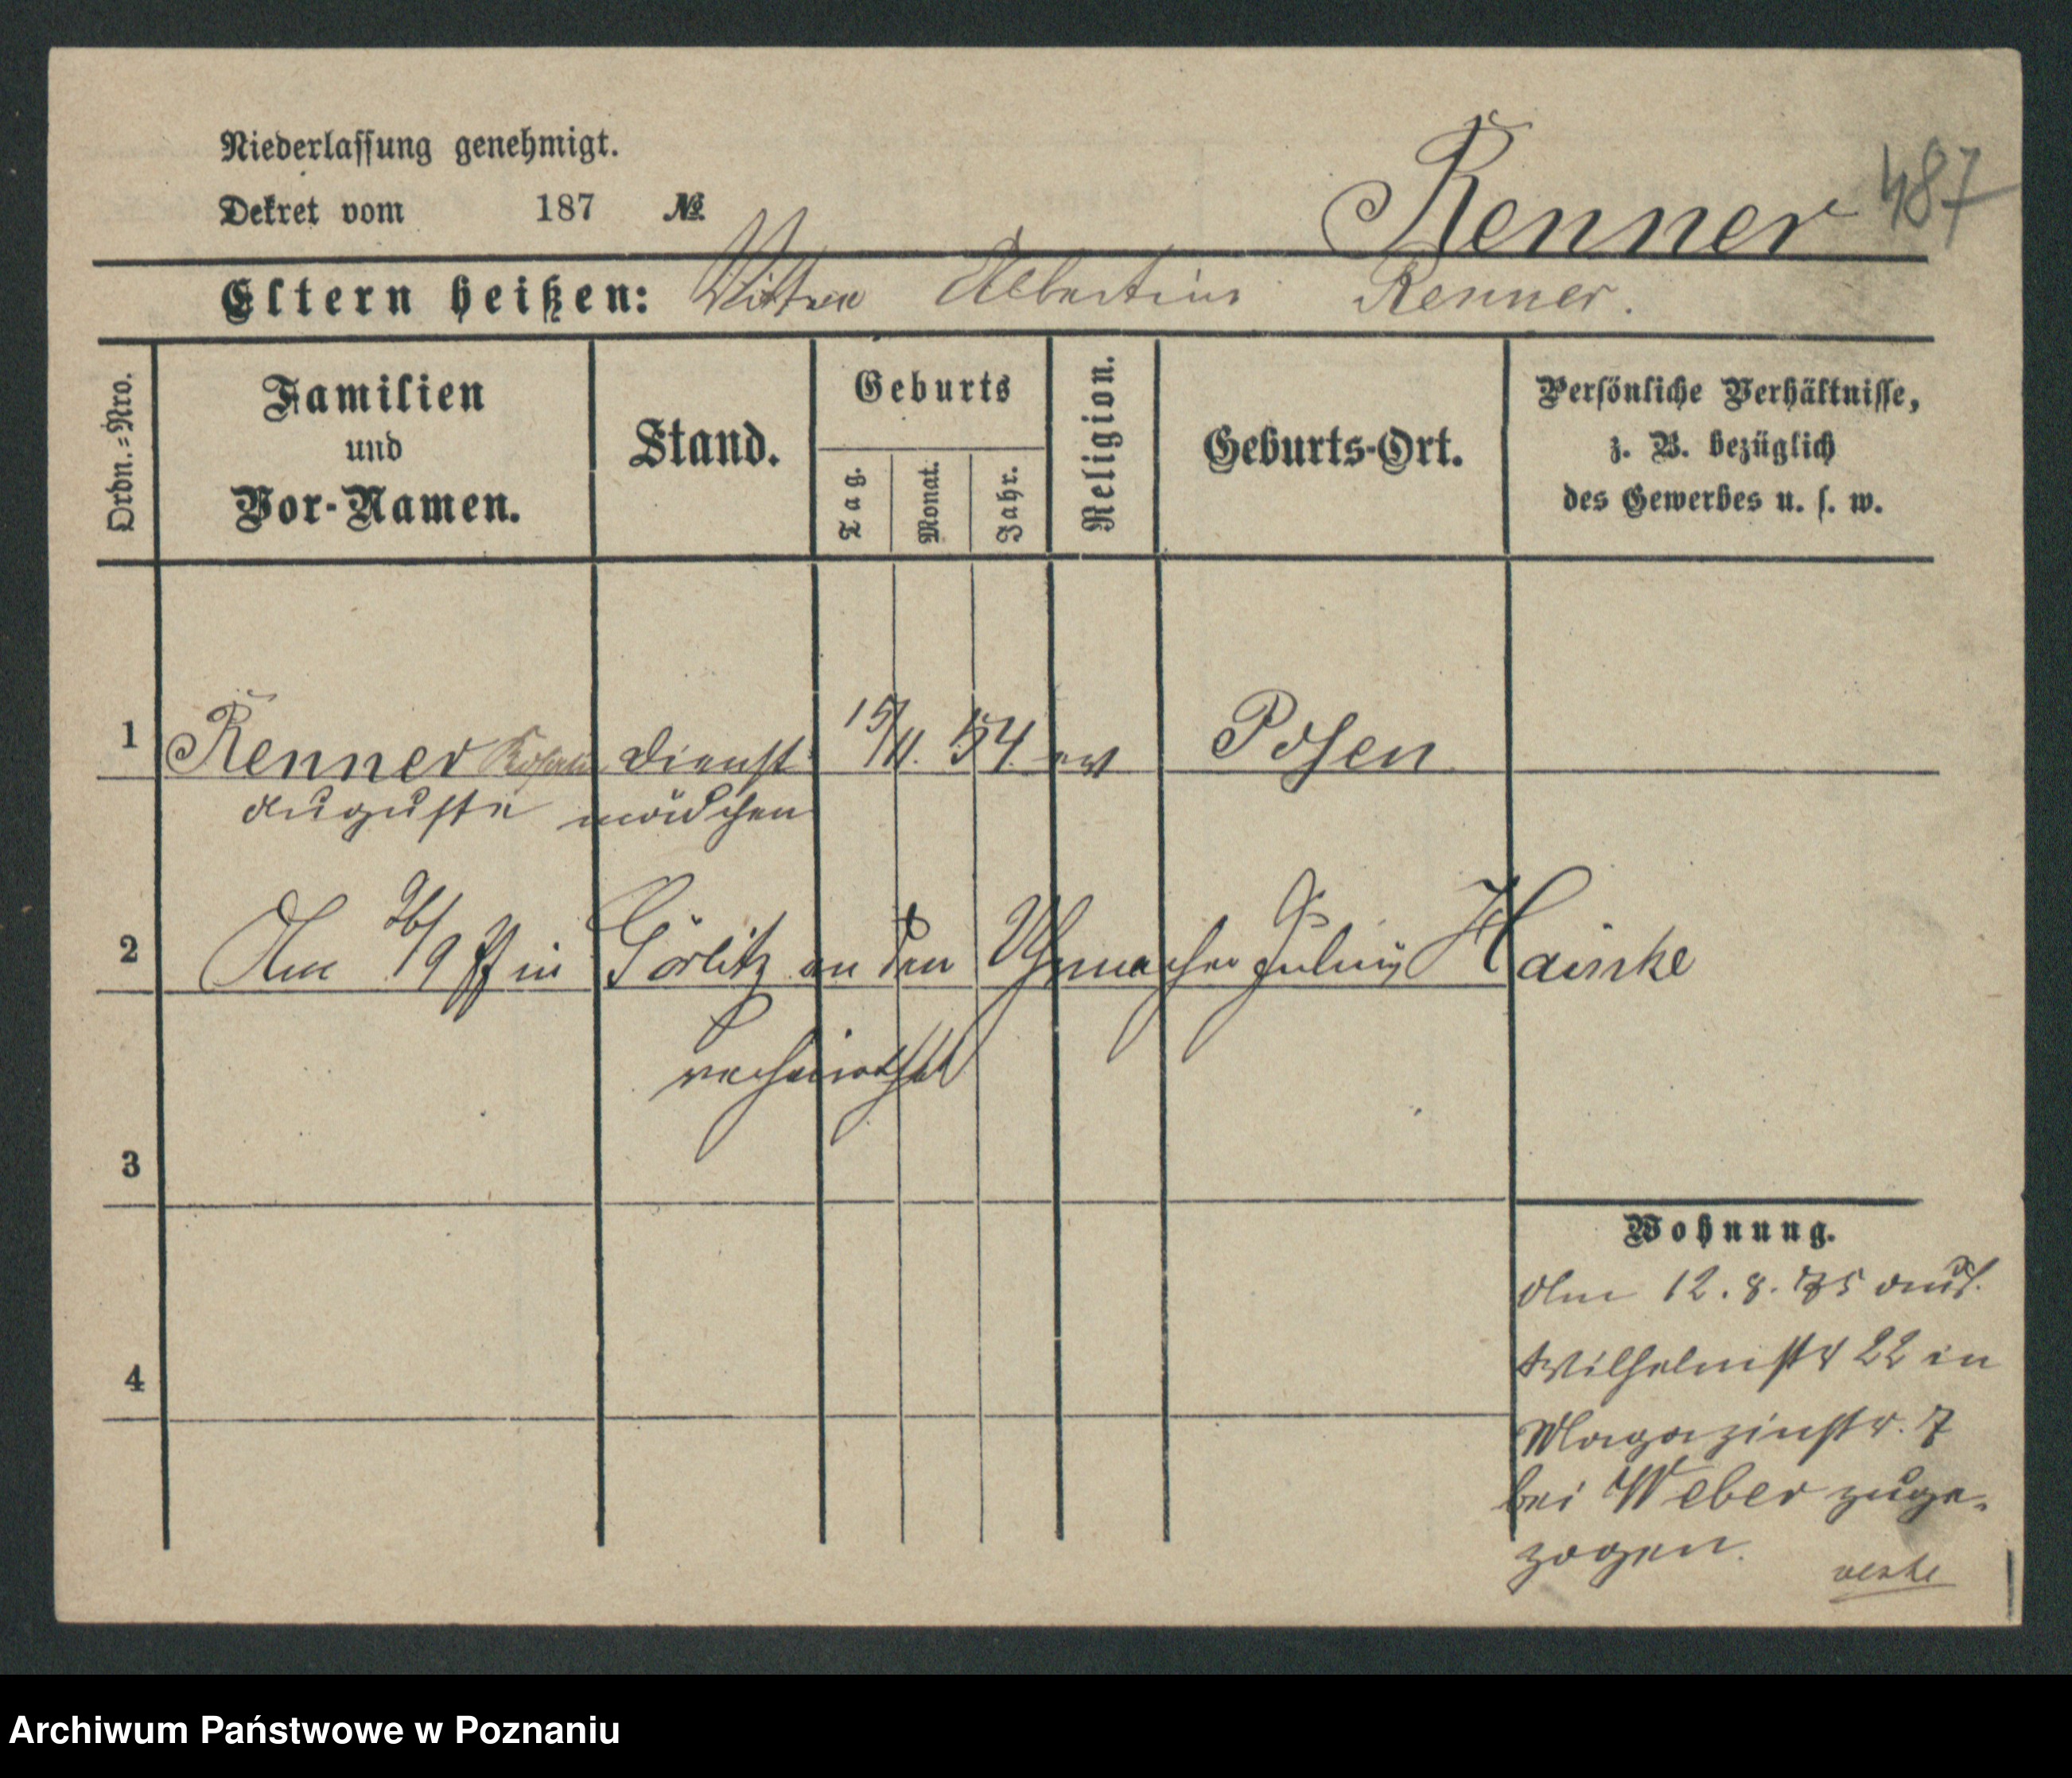 Niederlassung genehmigt.
Dekret vom 187 №
Renner 487
Eltern heißen: Albertine Renner.
Ordn.=Nro.
Familien
und
Vor-Namen.
Stand.
Geburts
Tag.
Monat.
Jahr.
Religion.
Geburts-Ort.
Persönliche Verhältnisse,
z. B. bezüglich
des Gewerbes u. s. w.
1 Renner Dienst 15/11. 54. ev Posen
Auguste mädchen
2 Am 26/9 77 in Görlitz an den Uhrmacher Julius Hainke
verheirathet
3
4
Wohnung.
Am 12. 8. 75 aus
Wilhelmstr 22 in
Magazinstr. 7
bei Weber zuge-
zogen.
Archiwum Państwowe w Poznaniu